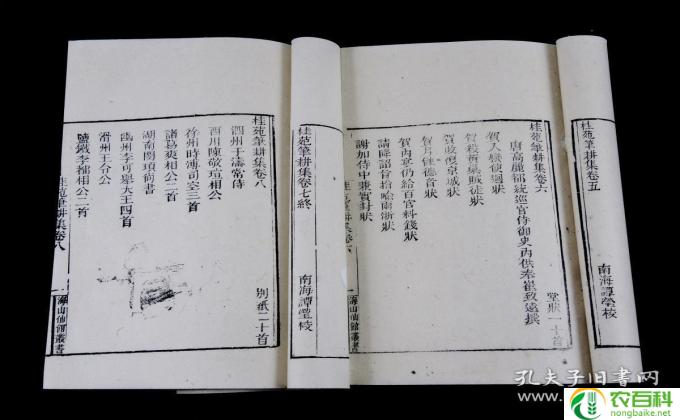 桂苑筆耕集卷五
南海譚瑩校
桂苑筆耕集卷六
堂狀一十首
唐高麗都統巡官侍御史內供奉崔致遠撰
賀入蠻使迴狀
賀殺獲草賊徒狀
賀收復京城狀
賀月蝕德音狀
賀內宴仍給百官料錢狀
謝加侍中兼實封狀
桂苑筆耕集卷六
海山仙館叢書
桂苑筆耕集卷七終
南海譚瑩校
桂苑筆耕集卷八
別紙二十首
泗州于濤常侍
西川陳敬瑄相公
徐州時溥司空三首
諸葛爽相公二首
湖南閔頊尚書
幽州李可舉大王四首
滑州王令公
鹽鐵李都相公二首
桂苑筆耕集卷八
海山仙館叢書
孔夫子旧书网
农百科
nongbaike.net